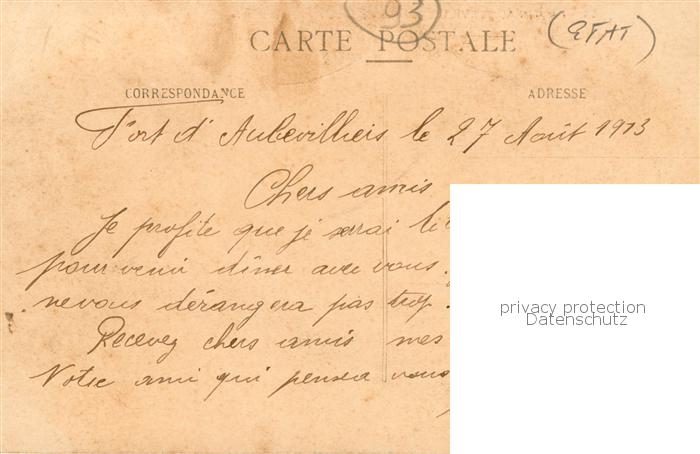 93
CARTE POSTALE
(ETAT)
CORRESPONDANCE
ADRESSE
Fort d'Aubevilliers le 27 Août 1913
Chers amis
Je profite que je serai li
pour venir dîner avec vous.
ne vous dérangera pas trop.
Recevez chers amis mes
Votre ami qui pensea vous
privacy protection
Datenschutz